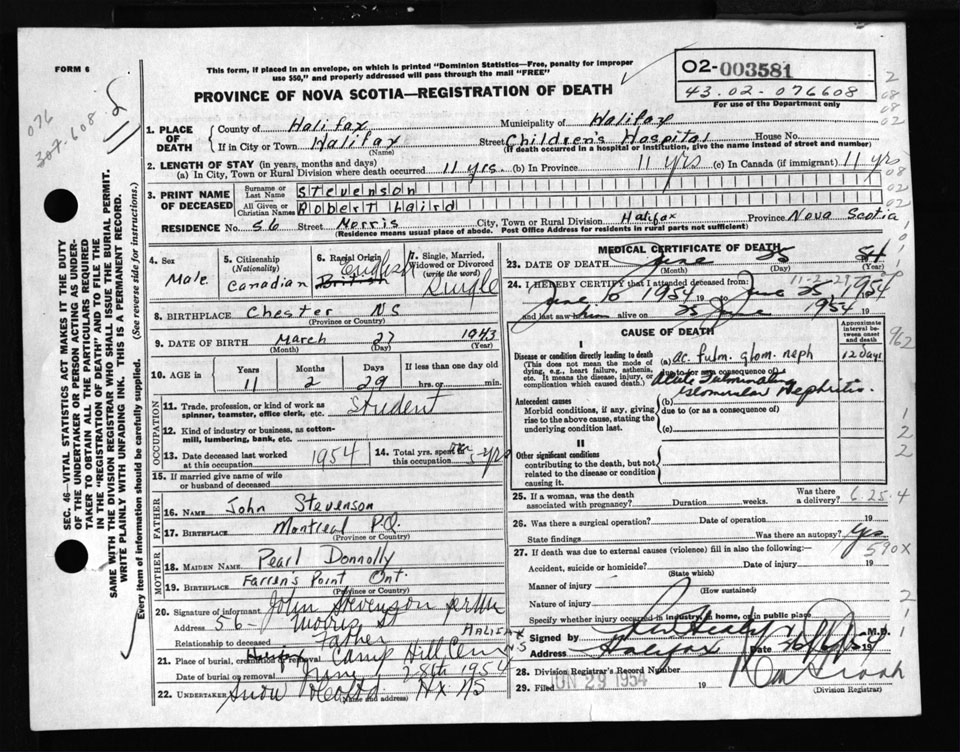 FORM 6
This form, if placed in an envelope, on which is printed "Dominion Statistics—Free, penalty for improper
use $50," and properly addressed will pass through the mail "FREE"
PROVINCE OF NOVA SCOTIA—REGISTRATION OF DEATH
02-003581
43.02-076608
For use of the Department only
076
307-608
SEC. 46—VITAL STATISTICS ACT MAKES IT THE DUTY
OF THE UNDERTAKER OR PERSON ACTING AS UNDER-
TAKER TO OBTAIN ALL THE PARTICULARS REQUIRED
IN THE "REGISTRATION OF DEATH" AND TO FILE THE
SAME WITH THE DIVISION REGISTRAR WHO SHALL ISSUE THE BURIAL PERMIT.
WRITE PLAINLY WITH UNFADING INK. THIS IS A PERMANENT RECORD.
Every item of information should be carefully supplied. (See reverse side for instructions.)
1. PLACE OF DEATH
County of Halifax Municipality of Halifax
If in City or Town Halifax (Name) Street Children's Hospital House No.
(If death occurred in a hospital or institution, give the name instead of street and number)
2. LENGTH OF STAY (in years, months and days)
(a) In City, Town or Rural Division where death occurred 11 yrs. (b) In Province 11 yrs (c) In Canada (if immigrant) 11 yrs
3. PRINT NAME OF DECEASED
Surname or Last Name Stevenson
All Given or Christian Names Robert Laird
RESIDENCE No. 56 Street Morris City, Town or Rural Division Halifax Province Nova Scotia
(Residence means usual place of abode. Post Office Address for residents in rural parts not sufficient)
4. Sex
Male
5. Citizenship (Nationality)
Canadian
6. Racial Origin
English
British
7. Single, Married, Widowed or Divorced (write the word)
Single
8. BIRTHPLACE Chester NS
(Province or Country)
9. DATE OF BIRTH March 27 1943
(Month) (Day) (Year)
10. AGE in Years Months Days If less than one day old
11 2 29 hrs. or min.
OCCUPATION
11. Trade, profession, or kind of work as spinner, teamster, office clerk, etc. Student
12. Kind of industry or business, as cotton-mill, lumbering, bank, etc.
13. Date deceased last worked at this occupation 1954
14. Total yrs. spent in this occupation 5-yrs
15. If married give name of wife or husband of deceased
FATHER
16. NAME John Stevenson
17. BIRTHPLACE Montreal P.Q.
(Province or Country)
MOTHER
18. MAIDEN NAME Pearl Donnolly
19. BIRTHPLACE Farran's Point Ont.
(Province or Country)
20. Signature of informant John Stevenson
Address 56- Morris St Halifax NS
Relationship to deceased Father
21. Place of burial, cremation or removal Camp Hill Cem
Date of burial or removal June 28th 1954
22. UNDERTAKER Snow & Co Ltd Hx NS
(Name and address)
MEDICAL CERTIFICATE OF DEATH
23. DATE OF DEATH June 25 54
(Month) (Day) (Year)
24. I HEREBY CERTIFY that I attended deceased from:
June 10 1954 19 to June 25 1954
and last saw him alive on 25 June 1954 19
CAUSE OF DEATH
Approximate interval between onset and death
I
Disease or condition directly leading to death
(This does not mean the mode of dying, e.g., heart failure, asthenia, etc. It means the disease, injury, or complication which caused death.)
(a) ac. fulm. glom. neph 12 days
due to (or as a consequence of)
Acute Fulminating
Glomerular Nephritis.
Antecedent causes
Morbid conditions, if any, giving rise to the above cause, stating the underlying condition last.
(b)
due to (or as a consequence of)
(c)
II
Other significant conditions
contributing to the death, but not related to the disease or condition causing it.
25. If a woman, was the death associated with pregnancy? Duration weeks. Was there a delivery? 6 25.4
26. Was there a surgical operation? Date of operation 19
State findings Was there an autopsy? Yes
590X
27. If death was due to external causes (violence) fill in also the following:—
Accident, suicide or homicide? Date of injury 19
(State which)
Manner of injury
(How sustained)
Nature of injury
Specify whether injury occurred in industry, in home, or in public place
Signed by M.D.
Address Halifax Date 19
28. Division Registrar's Record Number
29. Filed JUN 29 1954 19
(Division Registrar)